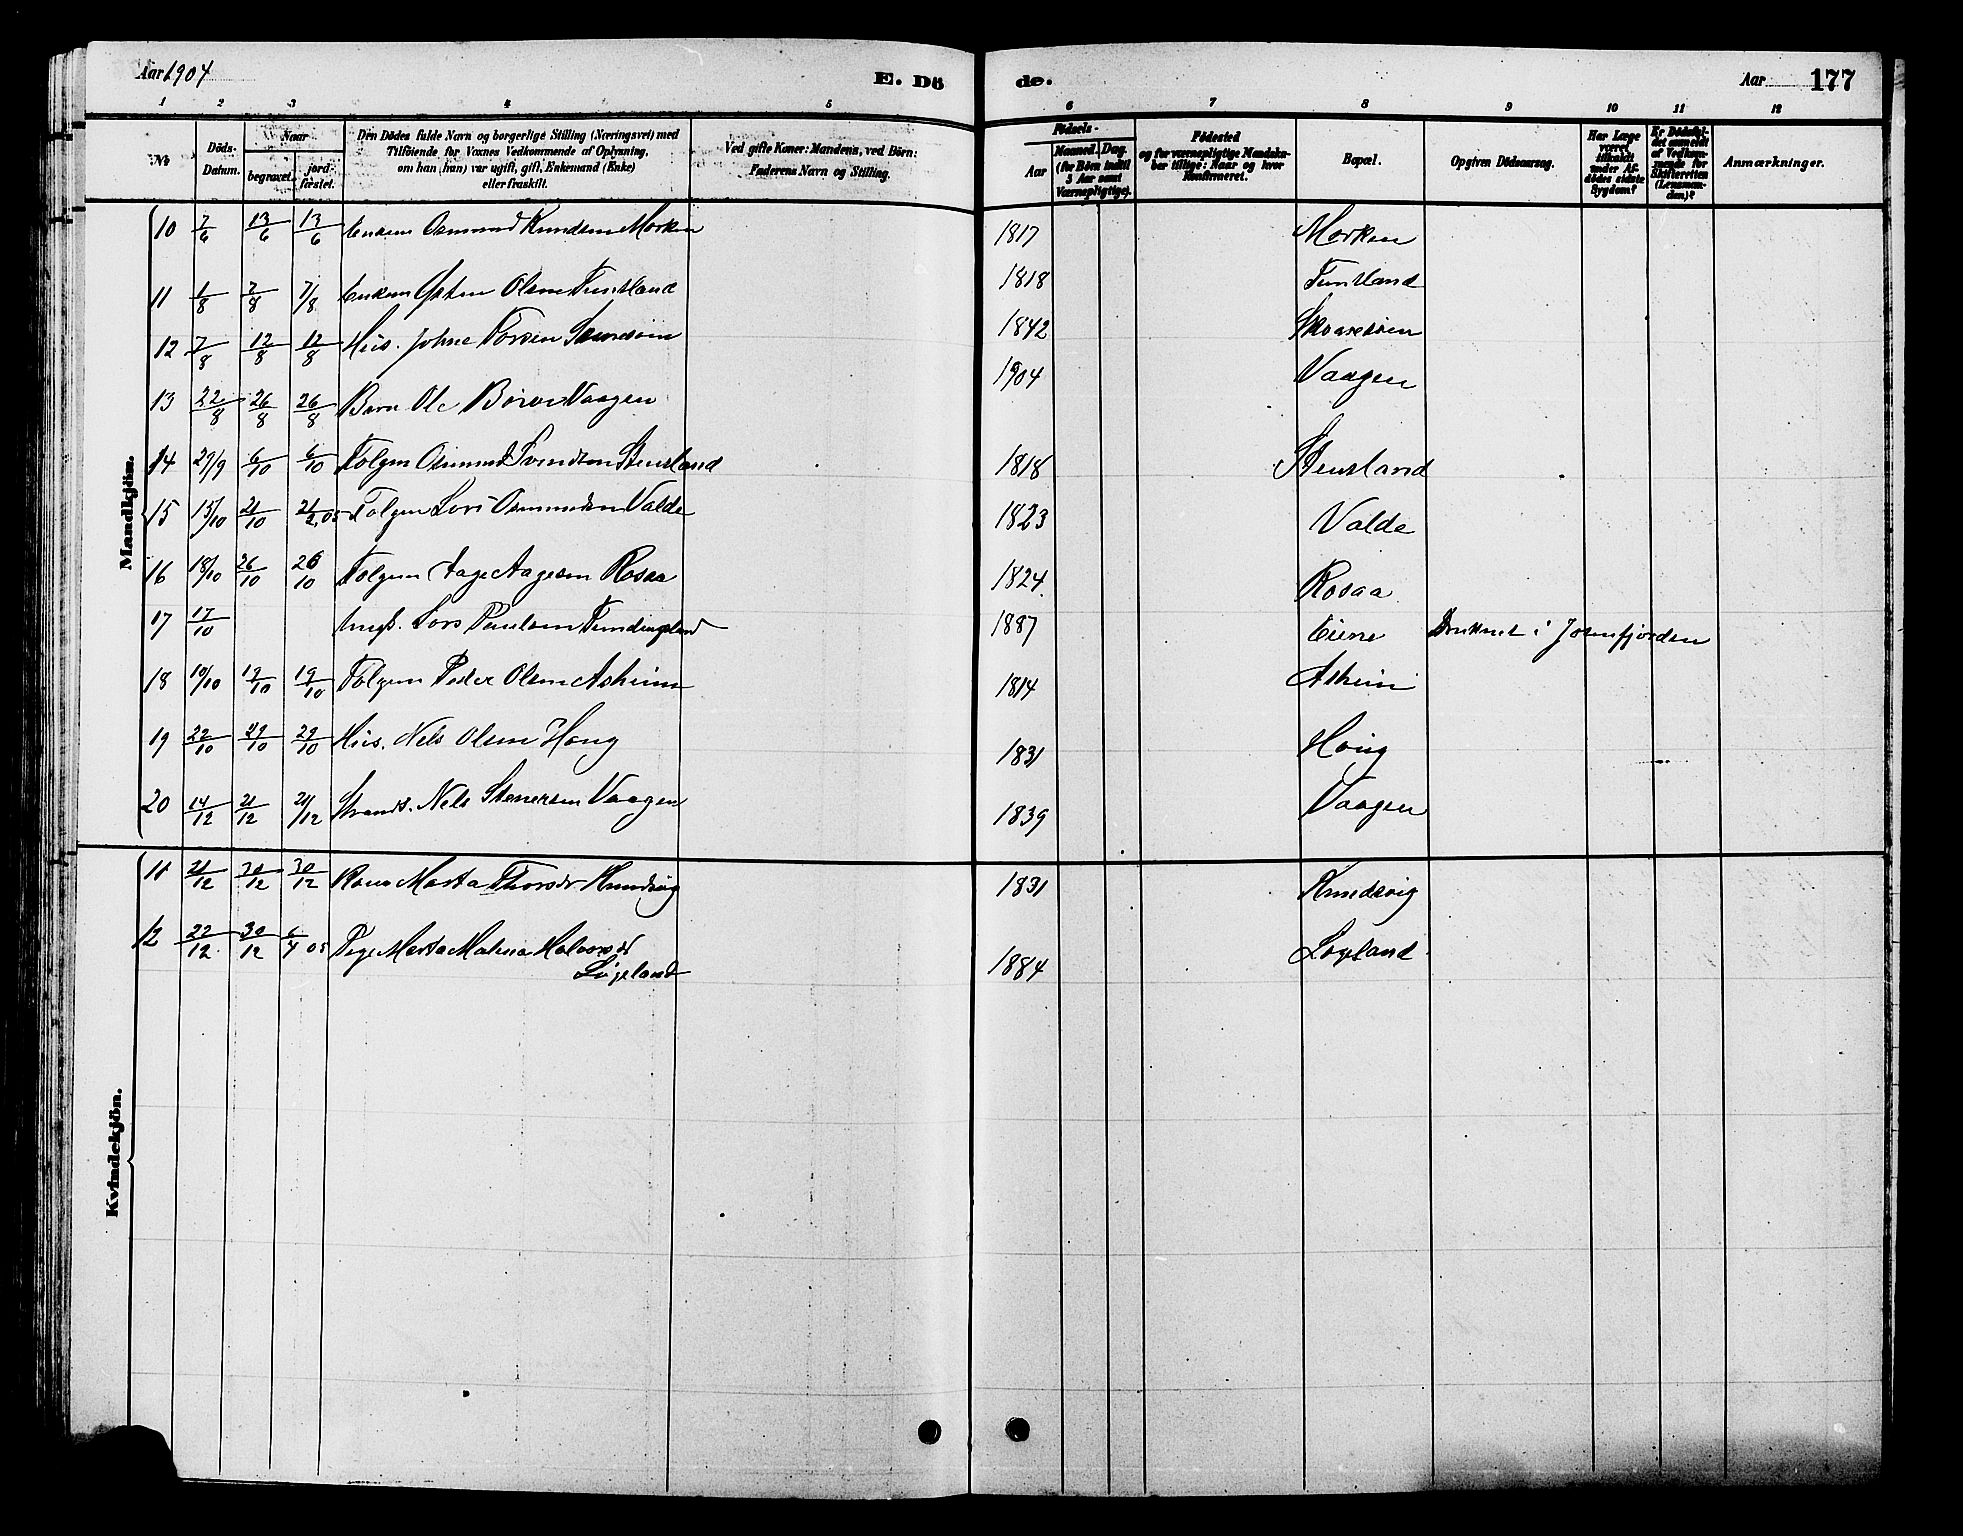 Aar 1904
E. Dö
de.
Aar
177
1 2 3 4 5 6 7 8 9 10 11 12
No
Döds-
Datum.
Naar
begravet.
jord-
fæstet.
Den Dödes fulde Navn og borgerlige Stilling (Næringsvei) med
Tilföiende for Voxnes Vedkommende af Oplysning,
om han (hun) var ugift, gift, Enkemand (Enke)
eller fraskilt.
Ved gifte Koner: Mandens, ved Börn:
Faderens Navn og Stilling.
Födsels-
Aar
Maaned. Dag.
(for Börn indtil
5 Aar samt
Værnepligtige).
Födested
og for værnepligtige Mandska-
ber tillige: Naar og hvor
Konfirmeret.
Bopæl.
Opgiven Dödsaarsag.
Har Læge
været
tilkaldt
under Af-
dödes sidste
Sygdom?
Er Dödsfal-
det anmeldt
af Vedkom-
mende for
Skifteretten
(Lensman-
den)?
Anmærkninger.
Mandkjön.
10 7/6 13/6 13/6 Osmund Knudsen Morken 1817 Morken
11 1/8 7/8 7/8 Østen Olsen 1818
12 7/8 12/8 12/8 Hus. Johne 1842
13 22/8 26/8 26/8 Barn Ole Vaagen 1904 Vaagen
14 29/9 6/10 6/10 Folgem Osmund Svendsen Stensland 1818 Stensland
15 15/10 21/10 21/2.05 Folgem Lars Osmundsen Valde 1823 Valde
16 18/10 26/10 26/10 Folgem Aage Aagesen Rosaa 1824. Rosaa
17 17/10 Ungk. Lars Paulsen 1887 Eiene Druknet i Jøsenfjorden
18 10/10 19/10 19/10 Folgem Peder Olsen Asheim 1814 Asheim
19 22/10 29/10 29/10 Hus. Nels Olsen Houg 1831 Houg
20 14/12 21/12 21/12 Strands. Nels Stenersen Vaagen 1839 Vaagen
Kvindekjön.
11 21/12 30/12 30/12 Kone Marta Thorsdr Knudsvig 1831 Knudsvig
12 22/12. 30/12 6/4 05 Pige Marta Malena Halvorsdr
Løgeland 1884 Løgeland